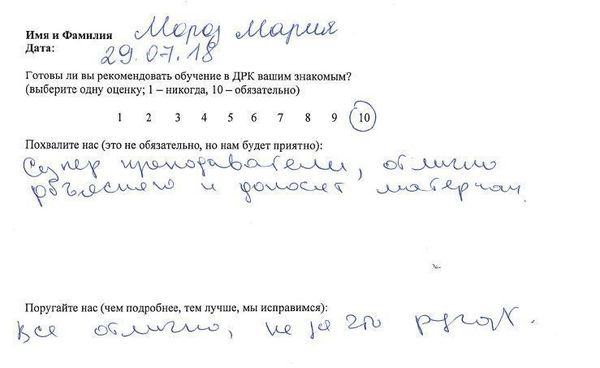 Имя и Фамилия Мороз Мария
Дата: 29.07.18
Готовы ли вы рекомендовать обучение в ДРК вашим знакомым?
(выберите одну оценку; 1 – никогда, 10 – обязательно)
1 2 3 4 5 6 7 8 9 10
Похвалите нас (это не обязательно, но нам будет приятно):
Супер преподаватели, отлично
объясняю и доносят материал.
Поругайте нас (чем подробнее, тем лучше, мы исправимся):
Все отлично, не за что ругать.